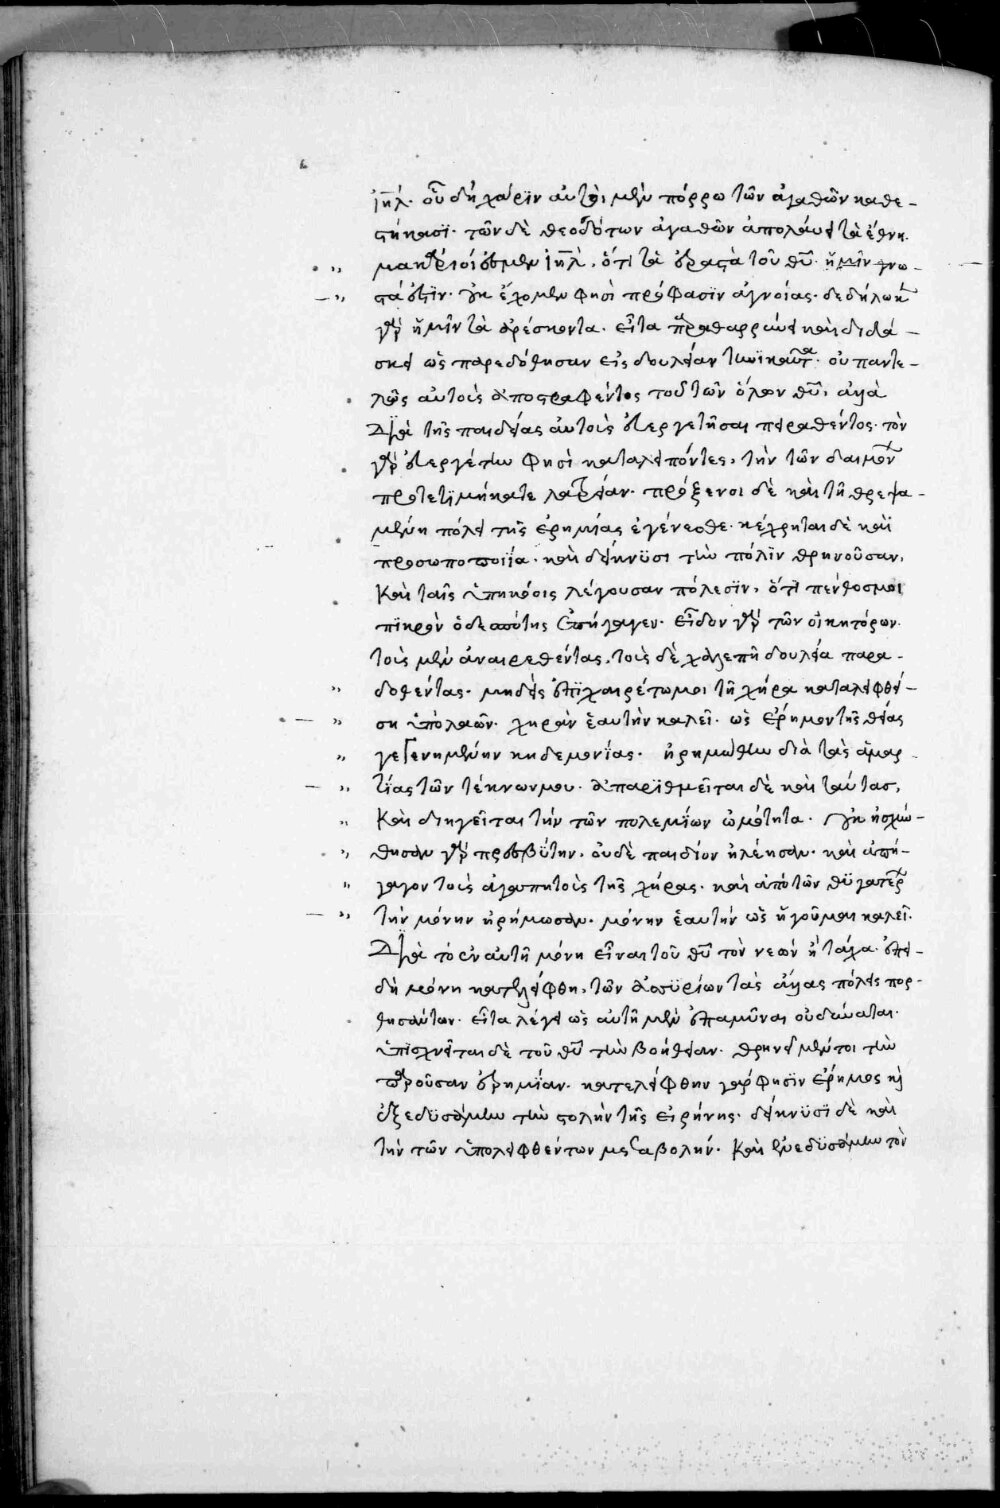 ἰη̅λ. οὗ δὴ χάριν αὐτοὶ μὲν πόρρω τῶν ἀγαθῶν καθε-
στήκασι. τῶν δὲ θεοσδότων ἀγαθῶν ἀπολάυει τὰ ἔθνη.
μακάριοί ἐσμεν ἰη̅λ, ὅτι τὰ ἀρεστὰ τοῦ θυ̅ ἡμῖν γνω-
στά ἐστιν. οὐκ ἔχομεν φησὶ πρόφασϊν ἀγνοίας. δεδήλωκε
γὰρ ἡμῖν τὰ ἀρέσκοντα. εἶτα παραθαρρύνει καὶ διδά-
σκει ὡς παρεδόθησαν εἰς δουλείαν τηνϊκαῦτα. οὐ παντε-
λῶς αὐτοὺς ἀποστραφέντος τοῦ τῶν ὅλων θυ̅, ἀλλὰ
Διὰ τῆς παιδείας αὐτοὺς εὐεργετῆσαι πειραθέντος. τὸν
γὰρ εὐεργέτην φησὶ καταλιπόντες, τὴν τῶν δαιμόνων
προτετϊμήκατε λατρείαν. πρόξενοι δὲ καὶ τῆ θρεψα-
μένη πόλει τῆς ἐρημίας ἐγένεσθε. κέχρηται δὲ καὶ
προσωποποιΐα. καὶ δείκνϋσι τὴν πόλϊν θρηνοῦσαν,
Καὶ ταῖς ὑπηκόοις λέγουσαν πόλεσϊν, ὅτι πένθος μοι
πϊκρὸν ὁ δεσπότης ἐπήγαγεν. εἶδον γὰρ τῶν οἰκητόρων
τοὺς μὲν ἀναιρεθέντας, τοὺς δὲ χαλεπῆ δουλεία παρα-
δοθέντας. μηδεὶς ἐπϊχαιρέτω μοι τῆ χήρα καταλειφθεί-
ση ὑπὸ λαῶν. χηρὰν ἑαυτὴν καλεῖ. ὡς ἔρημον τῆς θείας
γεγενημένην κηδεμονίας. ἠρημώθην διὰ τὰς ἁμαρ-
τίας τῶν τέκνων μου. ἀπαρϊθμεῖται δὲ καὶ ταύτας,
Καὶ διηγεῖται τὴν τῶν πολεμίων ὠμότητα. οὐκ ἠσχύν-
θησαν γὰρ πρεσβύτην. οὐδὲ παιδίον ἠλέησαν. καὶ ἀπή-
γαγον τοὺς ἀγαπητοὺς τῆς χήρας. καὶ ἀπὸ τῶν θϋγατέρων
τὴν μόνην ἠρήμωσαν. μόνην ἑαυτὴν ὡς ἡγοῦμαι καλεῖ.
Διὰ τὸ ἐν αὐτῆ μόνη εἶναι τοῦ θυ̅ τὸν νεών ἢ τάχα. ἐπει-
δὴ μόνη κατελείφθη, τῶν ἀσσϋρίων τὰς ἄλλας πόλεις πορ-
θησάντων. εἶτα λέγει ὡς αὐτῆ μὲν ἐπαμῦναι οὐ δύναται.
ὑπισχνεῖται δὲ τοῦ θυ̅ τὴν βοήθειαν. θρηνεῖ μέντοι τὴν
παροῦσαν ἐρημίαν. κατελείφθην γάρ φησϊν ἔρημος κὶ
ἐξεδϋσάμην τὴν στολὴν τῆς εἰρήνης. δείκνϋσϊ δὲ καὶ
τὴν τῶν ὑπολειφθέντων μεταβολήν. Καὶ ἐνεδϋσάμην τὸν